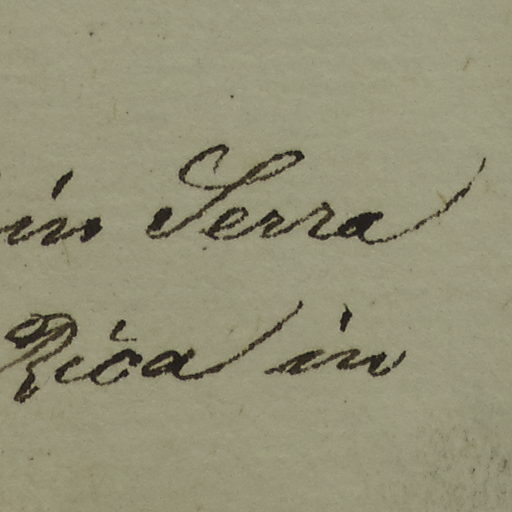 in Serra
Rica in